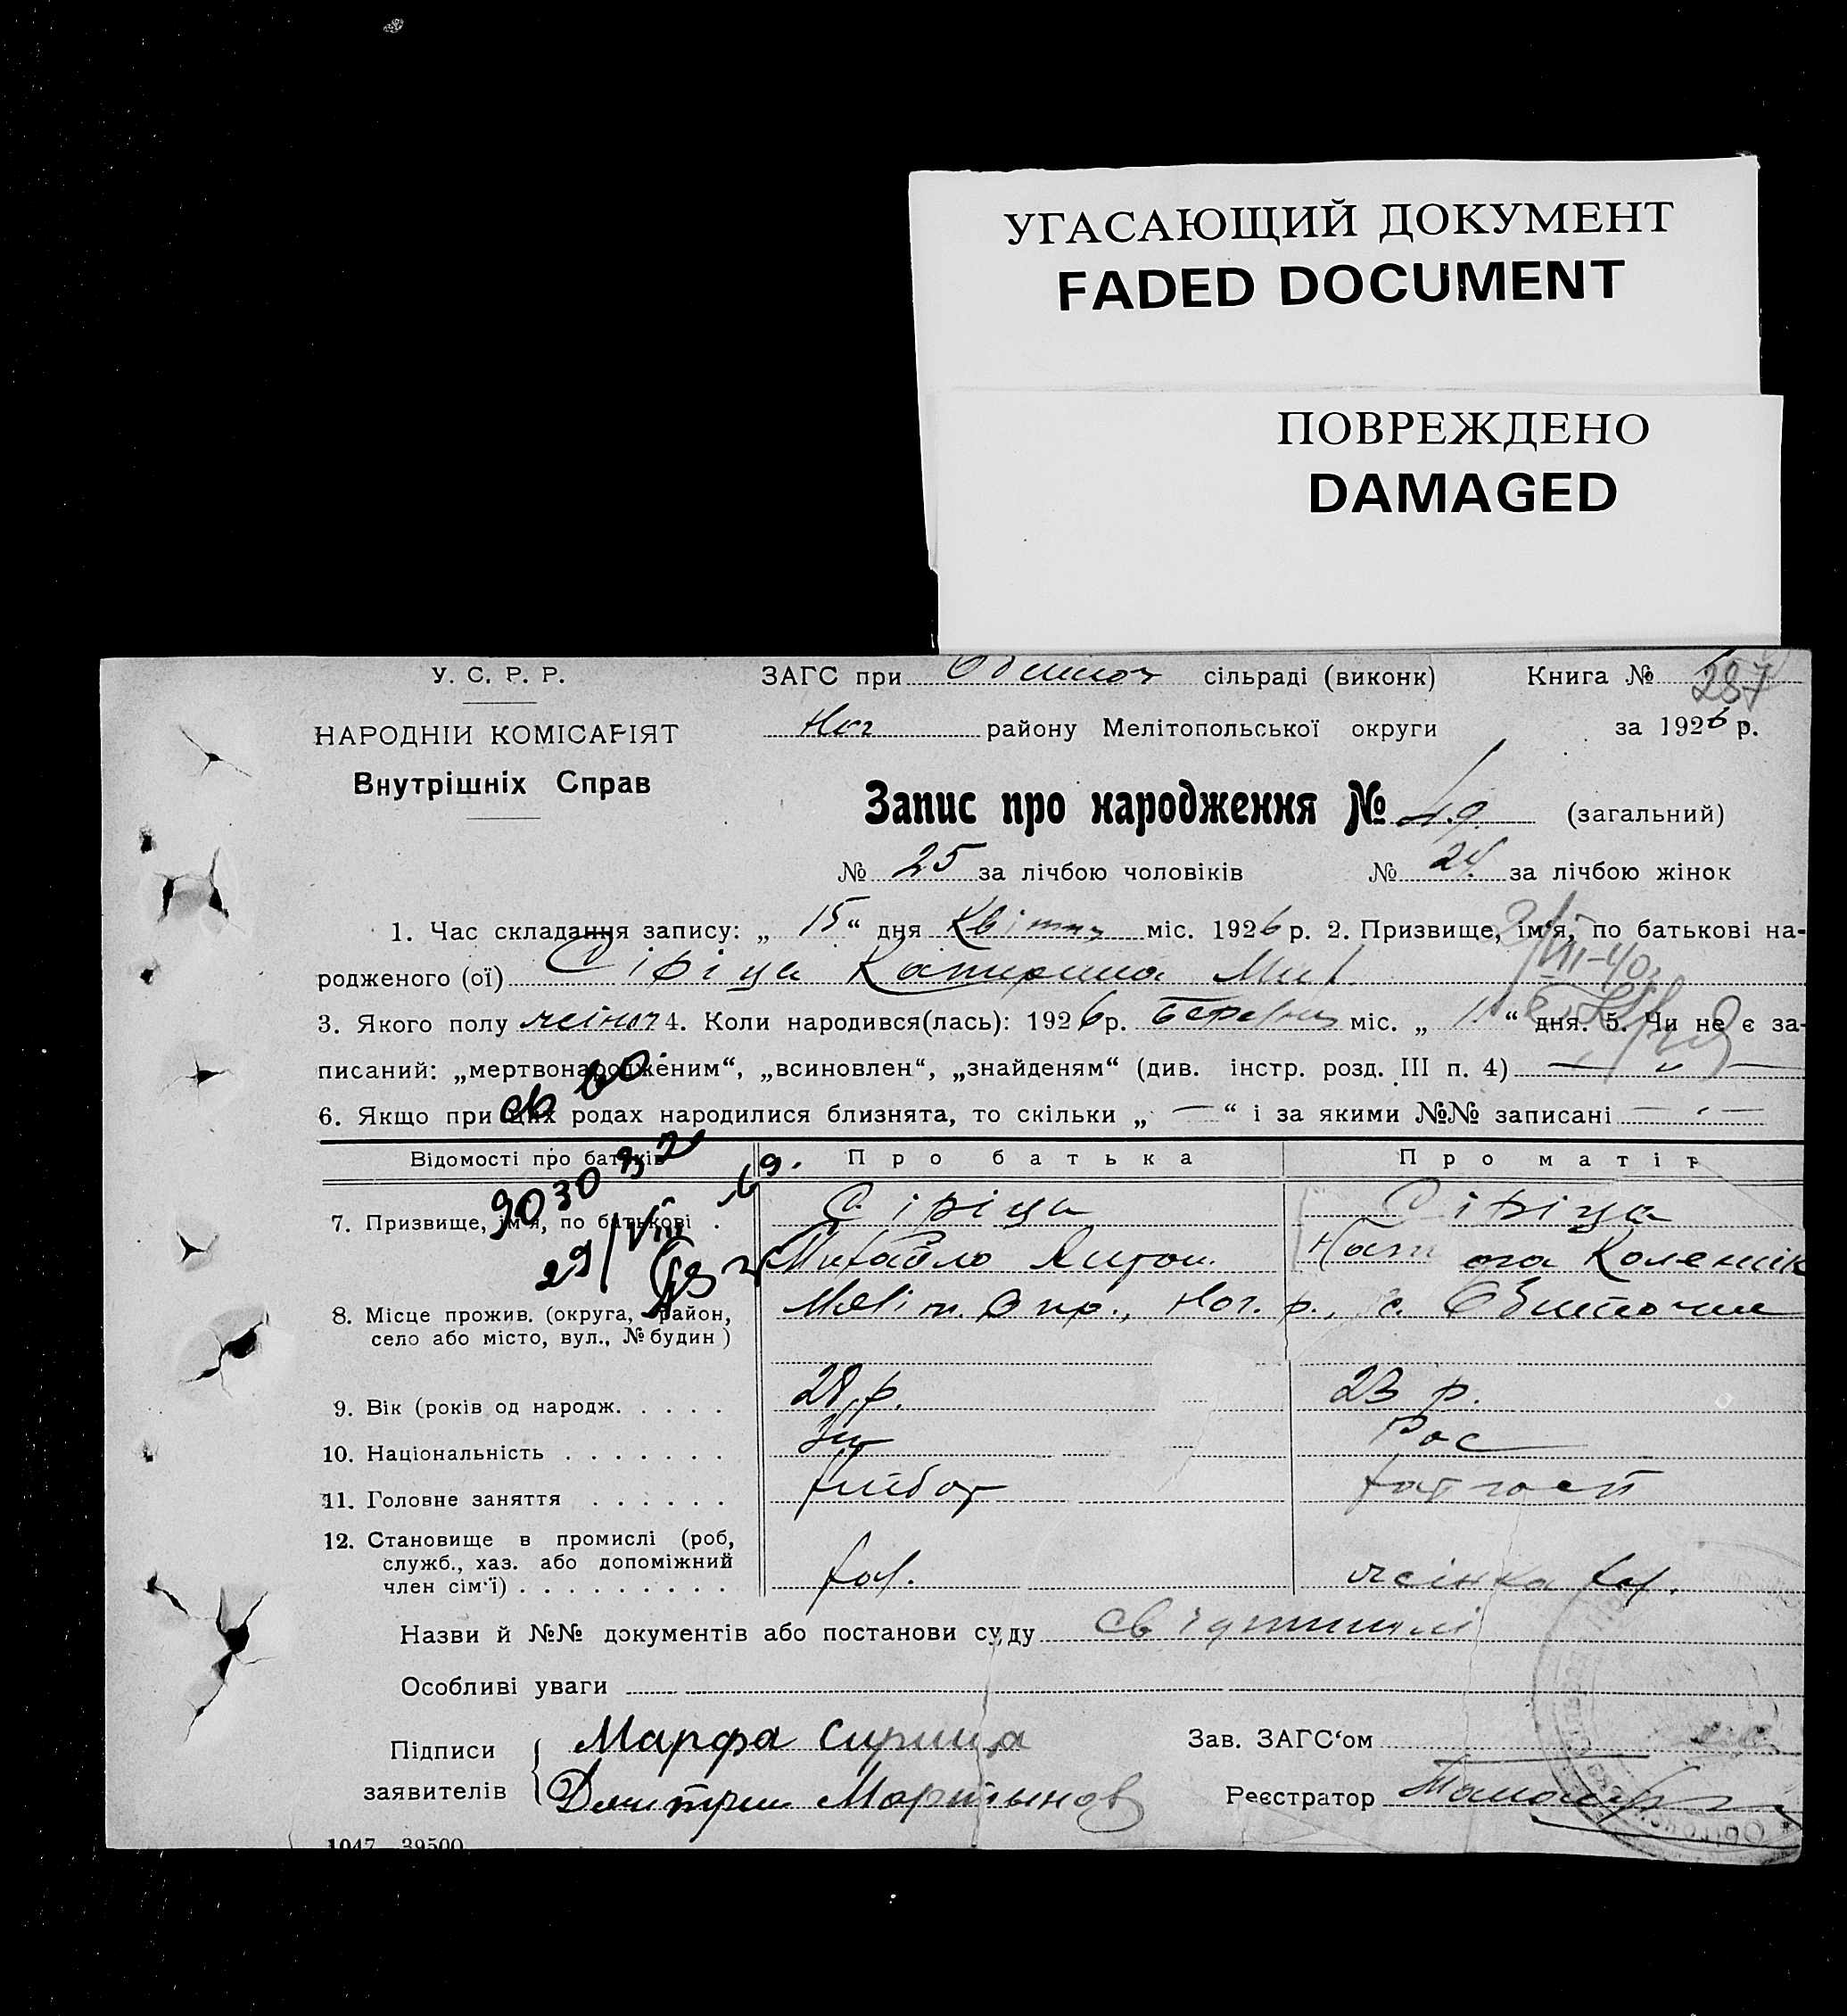 УГАСАЮЩИЙ ДОКУМЕНТ
FADED DOCUMENT
ПОВРЕЖДЕНО
DAMAGED
У. С. Р. Р.
НАРОДНІИ КОМІСАРІЯТ
Внутрішніх Справ
ЗАГС при сільраді (виконк) Книга № 237
Ног району Мелітопольської округи за 1926 р.
Запис про народження № 49 (загальний)
№ 25 за лічбою чоловіків № 24 за лічбою жінок
1. Час складання запису: „ 15 “ дня Квітня міс. 1926 р. 2. Призвище, ім‘я, по батькові на-
родженого (ої) Сіріца Катирина Мих
3. Якого полу жіноч 4. Коли народився(лась): 1926 р. березня міс. „ “ дня. 5. Чи не є за-
писаний: „мертвонародженим“, „всиновлен“, „знайденям“ (див. інстр. розд. III п. 4) — „ —
6. Якщо при цих родах народилися близнята, то скільки „ — “ і за якими №№ записані — „ —
Відомості про батьків Про батька Про матір
7. Призвище, ім‘я, по батькові . Сіріца Сіріца
Михайло Антон. Коленнік
8. Місце прожив. (округа, район,
село або місто, вул., № будин )
Меліт. Окр., Ног. р., с. Обиточне
9. Вік (років од народж. . . . . 28 р. 23 р.
10. Національність . . . . . . . Рос
11. Головне заняття . . . . . . хлібор
12. Становище в промислі (роб,
служб., хаз. або допоміжний
член сім‘ї) . . . . . . . . . хаз. жінка хаз.
Назви й №№ документів або постанови суду
Особливі уваги
Підписи
заявителів
Марфа Сирица
Дмитрии Мартынов
Зав. ЗАГС‘ом
Реєстратор
29/VIII
903032
1047 39500